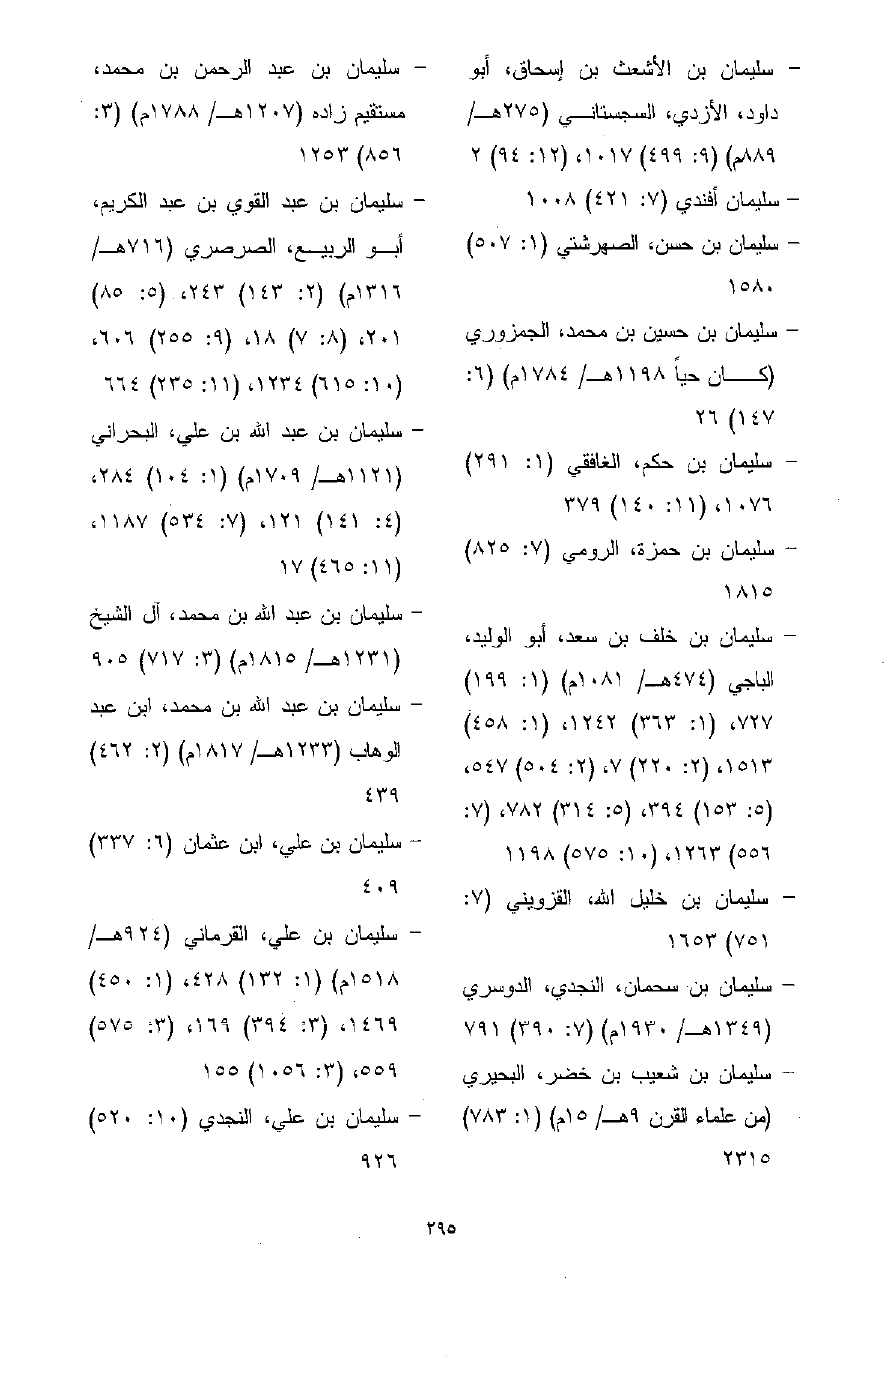 - سليمان بن الأشعث بن إسحاق، أبو
داود، الأزدي، السجستاني (٢٧٥هـ/
٨٨٩م) (٩: ٤٩٩) ١٠١٧، (١٢: ٩٤) ٢
- سليمان أفندي (٧: ٤٢١) ١٠٠٨
- سليمان بن حسن، الصهرشتي (١: ٥٠٧)
١٥٨٠
- سليمان بن حسين بن محمد، الجمزوري
(كان حياً ١١٩٨هـ/ ١٧٨٤م) (٦:
١٤٧) ٢٦
- سليمان بن حكم، الغافقي (١: ٢٩١)
١٠٧٦، (١١: ١٤٠) ٣٧٩
- سليمان بن حمزة، الرومي (٧: ٨٢٥)
١٨١٥
- سليمان بن خلف بن سعد، أبو الوليد،
الباجي (٤٧٤هـ/ ١٠٨١م) (١: ١٩٩)
٧٢٧، (١: ٣٦٣) ١٢٤٢، (١: ٤٥٨)
١٥١٣، (٢: ٢٢٠) ٧، (٢: ٥٠٤) ٥٤٧،
(٥: ١٥٣) ٣٩٤، (٥: ٣١٤) ٧٨٢، (٧:
٥٥٦) ١٢٦٣، (١٠: ٥٧٥) ١١٩٨
- سليمان بن خليل الله، القزويني (٧:
٧٥١) ١٦٥٣
- سليمان بن سحمان، النجدي، الدوسري
(١٣٤٩هـ/ ١٩٣٠م) (٧: ٣٩٠) ٧٩١
- سليمان بن شعيب بن خضر، البحيري
(من علماء القرن ٩هـ/ ١٥م) (١: ٧٨٣)
٢٣١٥
- سليمان بن عبد الرحمن بن محمد،
مستقيم زاده (١٢٠٧هـ/ ١٧٨٨م) (٣:
٨٥٦) ١٢٥٣
- سليمان بن عبد القوي بن عبد الكريم،
أبو الربيع، الصرصري (٧١٦هـ/
١٣١٦م) (٢: ١٤٣) ٢٤٣، (٥: ٨٥)
٢٠١، (٨: ٧) ١٨، (٩: ٢٥٥) ٦٠٦،
(١٠: ٦١٥) ١٢٣٤، (١١: ٢٣٥) ٦٦٤
- سليمان بن عبد الله بن علي، البحراني
(١١٢١هـ/ ١٧٠٩م) (١: ١٠٤) ٢٨٤،
(٤: ١٤١) ١٢١، (٧: ٥٣٤) ١١٨٧،
(١١: ٤٦٥) ١٧
- سليمان بن عبد الله بن محمد، آل الشيخ
(١٢٣١هـ/ ١٨١٥م) (٣: ٧١٧) ٩٠٥
- سليمان بن عبد الله بن محمد، ابن عبد
الوهاب (١٢٣٣هـ/ ١٨١٧م) (٢: ٤٦٢)
٤٣٩
- سليمان بن علي، ابن عثمان (٦: ٣٣٧)
٤٠٩
- سليمان بن علي، القرماني (٩٢٤هـ/
١٥١٨م) (١: ١٣٢) ٤٢٨، (١: ٤٥٠)
١٤٦٩، (٣: ٣٩٤) ١٦٩، (٣: ٥٧٥)
٥٥٩، (٣: ١٠٥٦) ١٥٥
- سليمان بن علي، النجدي (١٠: ٥٢٠)
٩٢٦
٢٩٥